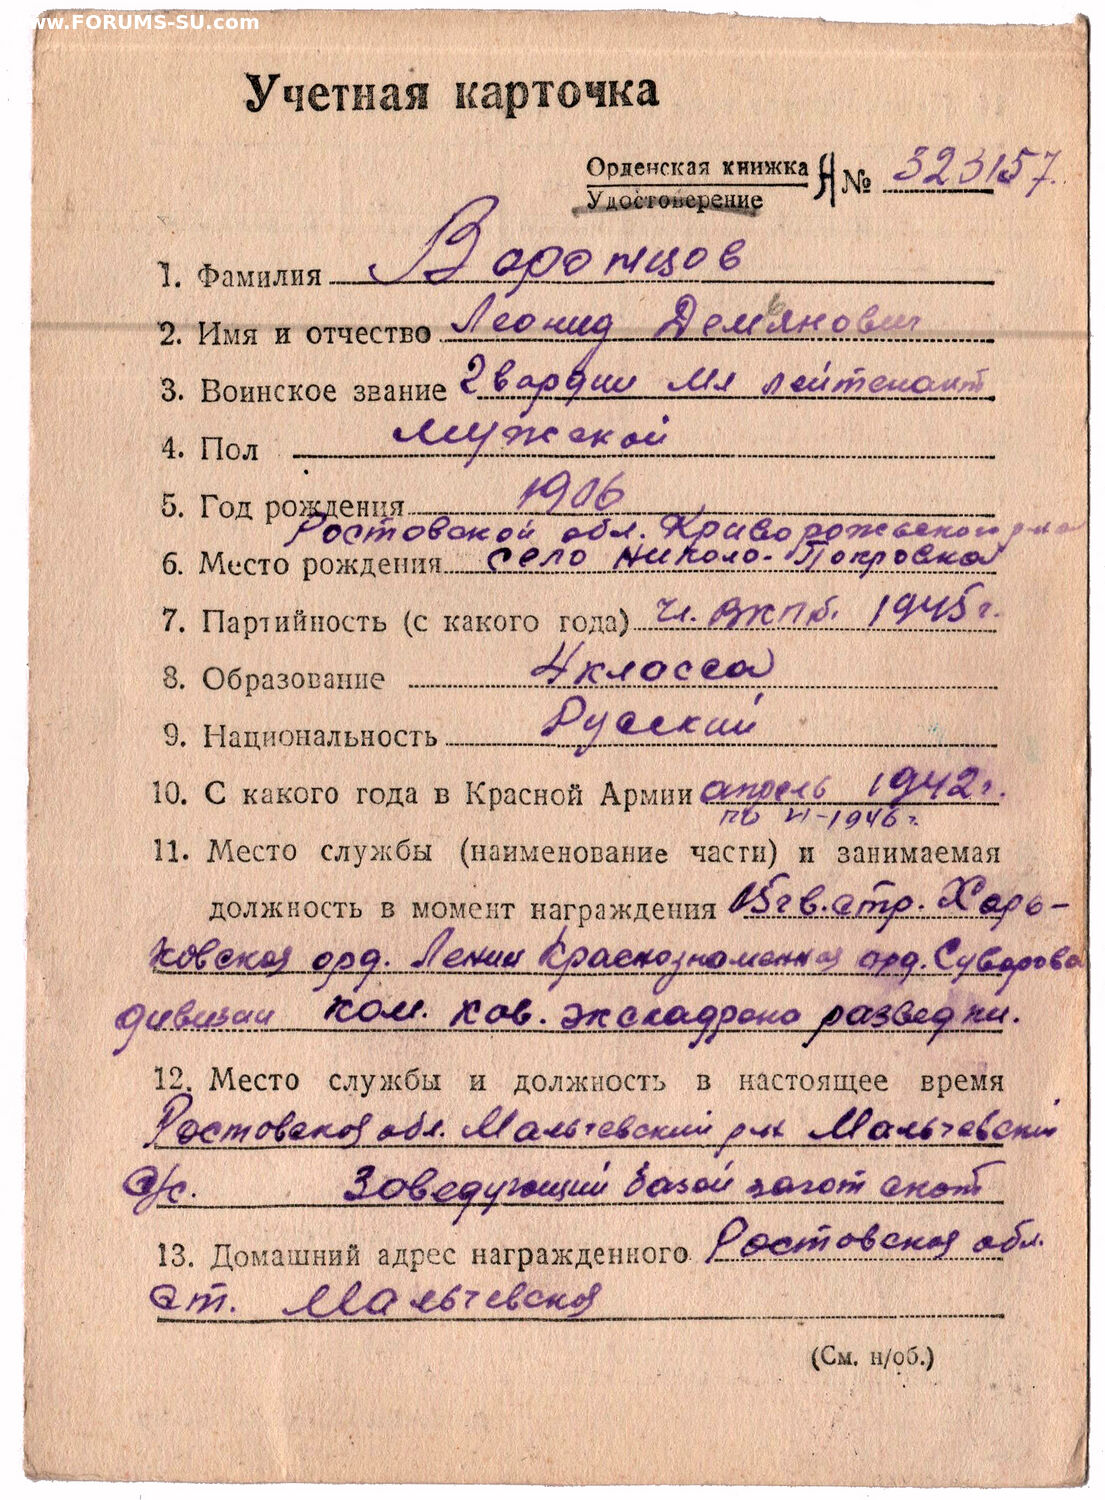 www.FORUMS-SU.com
Учетная карточка
Орденская книжка А № 323157
Удостоверение
1. Фамилия Воронцов
2. Имя и отчество Леонид Демьянович
3. Воинское звание Гвардии мл лейтенант
4. Пол мужской
5. Год рождения 1906
Ростовской обл. Криворожьской р-на
6. Место рождения село Николо-Покровка
7. Партийность (с какого года) чл. ВКПб. 1945 г.
8. Образование 4 класса
9. Национальность Русский
10. С какого года в Красной Армии апрель 1942 г.
по VI-1946 г.
11. Место службы (наименование части) и занимаемая
должность в момент награждения 15 гв. стр. Харь-
ковская орд. Ленина Краснознаменная орд. Суворова
дивизии ком. кав. эскадрона разведки.
12. Место службы и должность в настоящее время
Ростовская обл. Мальчевский р-н Мальчевский
с/с. Заведующий базой загот скот
13. Домашний адрес награжденного Ростовская обл.
ст. Мальчевская
(См. н/об.)